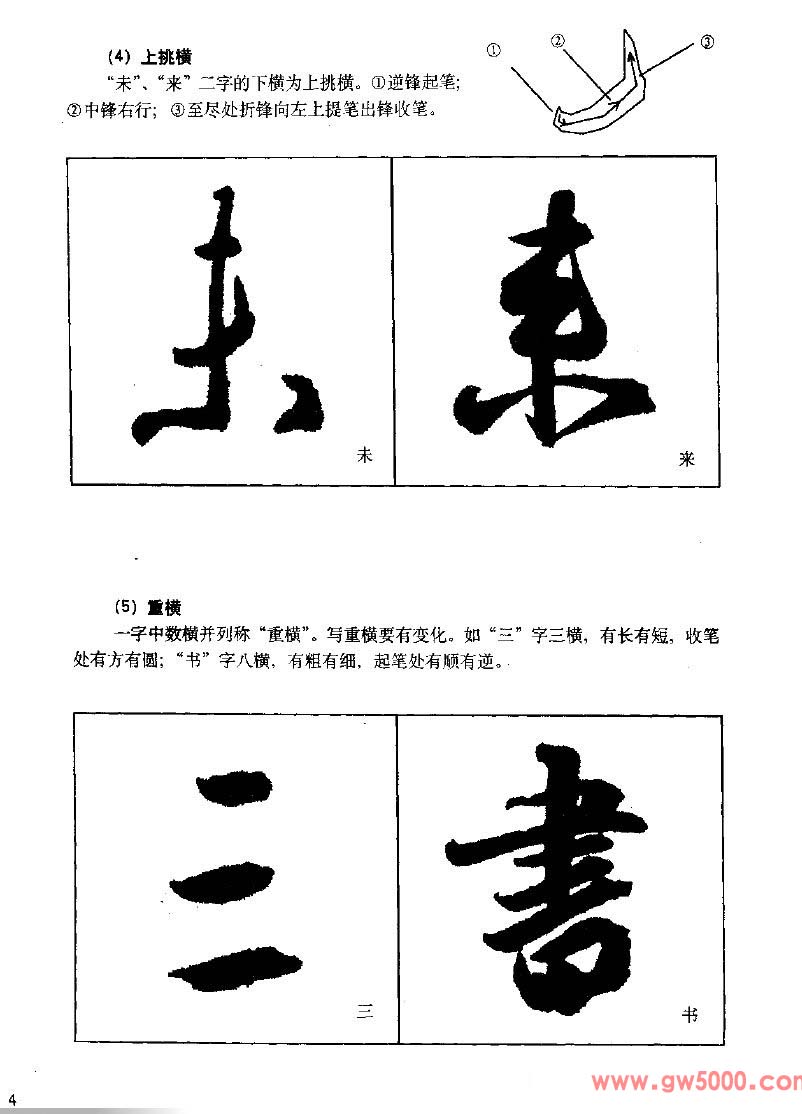 (4) 上挑横
“未”、“来”二字的下横为上挑横。①逆锋起笔;
②中锋右行; ③至尽处折锋向左上提笔出锋收笔。
① ② ③
未 来
未
来
(5) 重横
一字中数横并列称“重横”。写重横要有变化。如“三”字三横, 有长有短, 收笔
处有方有圆; “书”字八横, 有粗有细, 起笔处有顺有逆。
三 書
三
书
www.gw5000.com
4